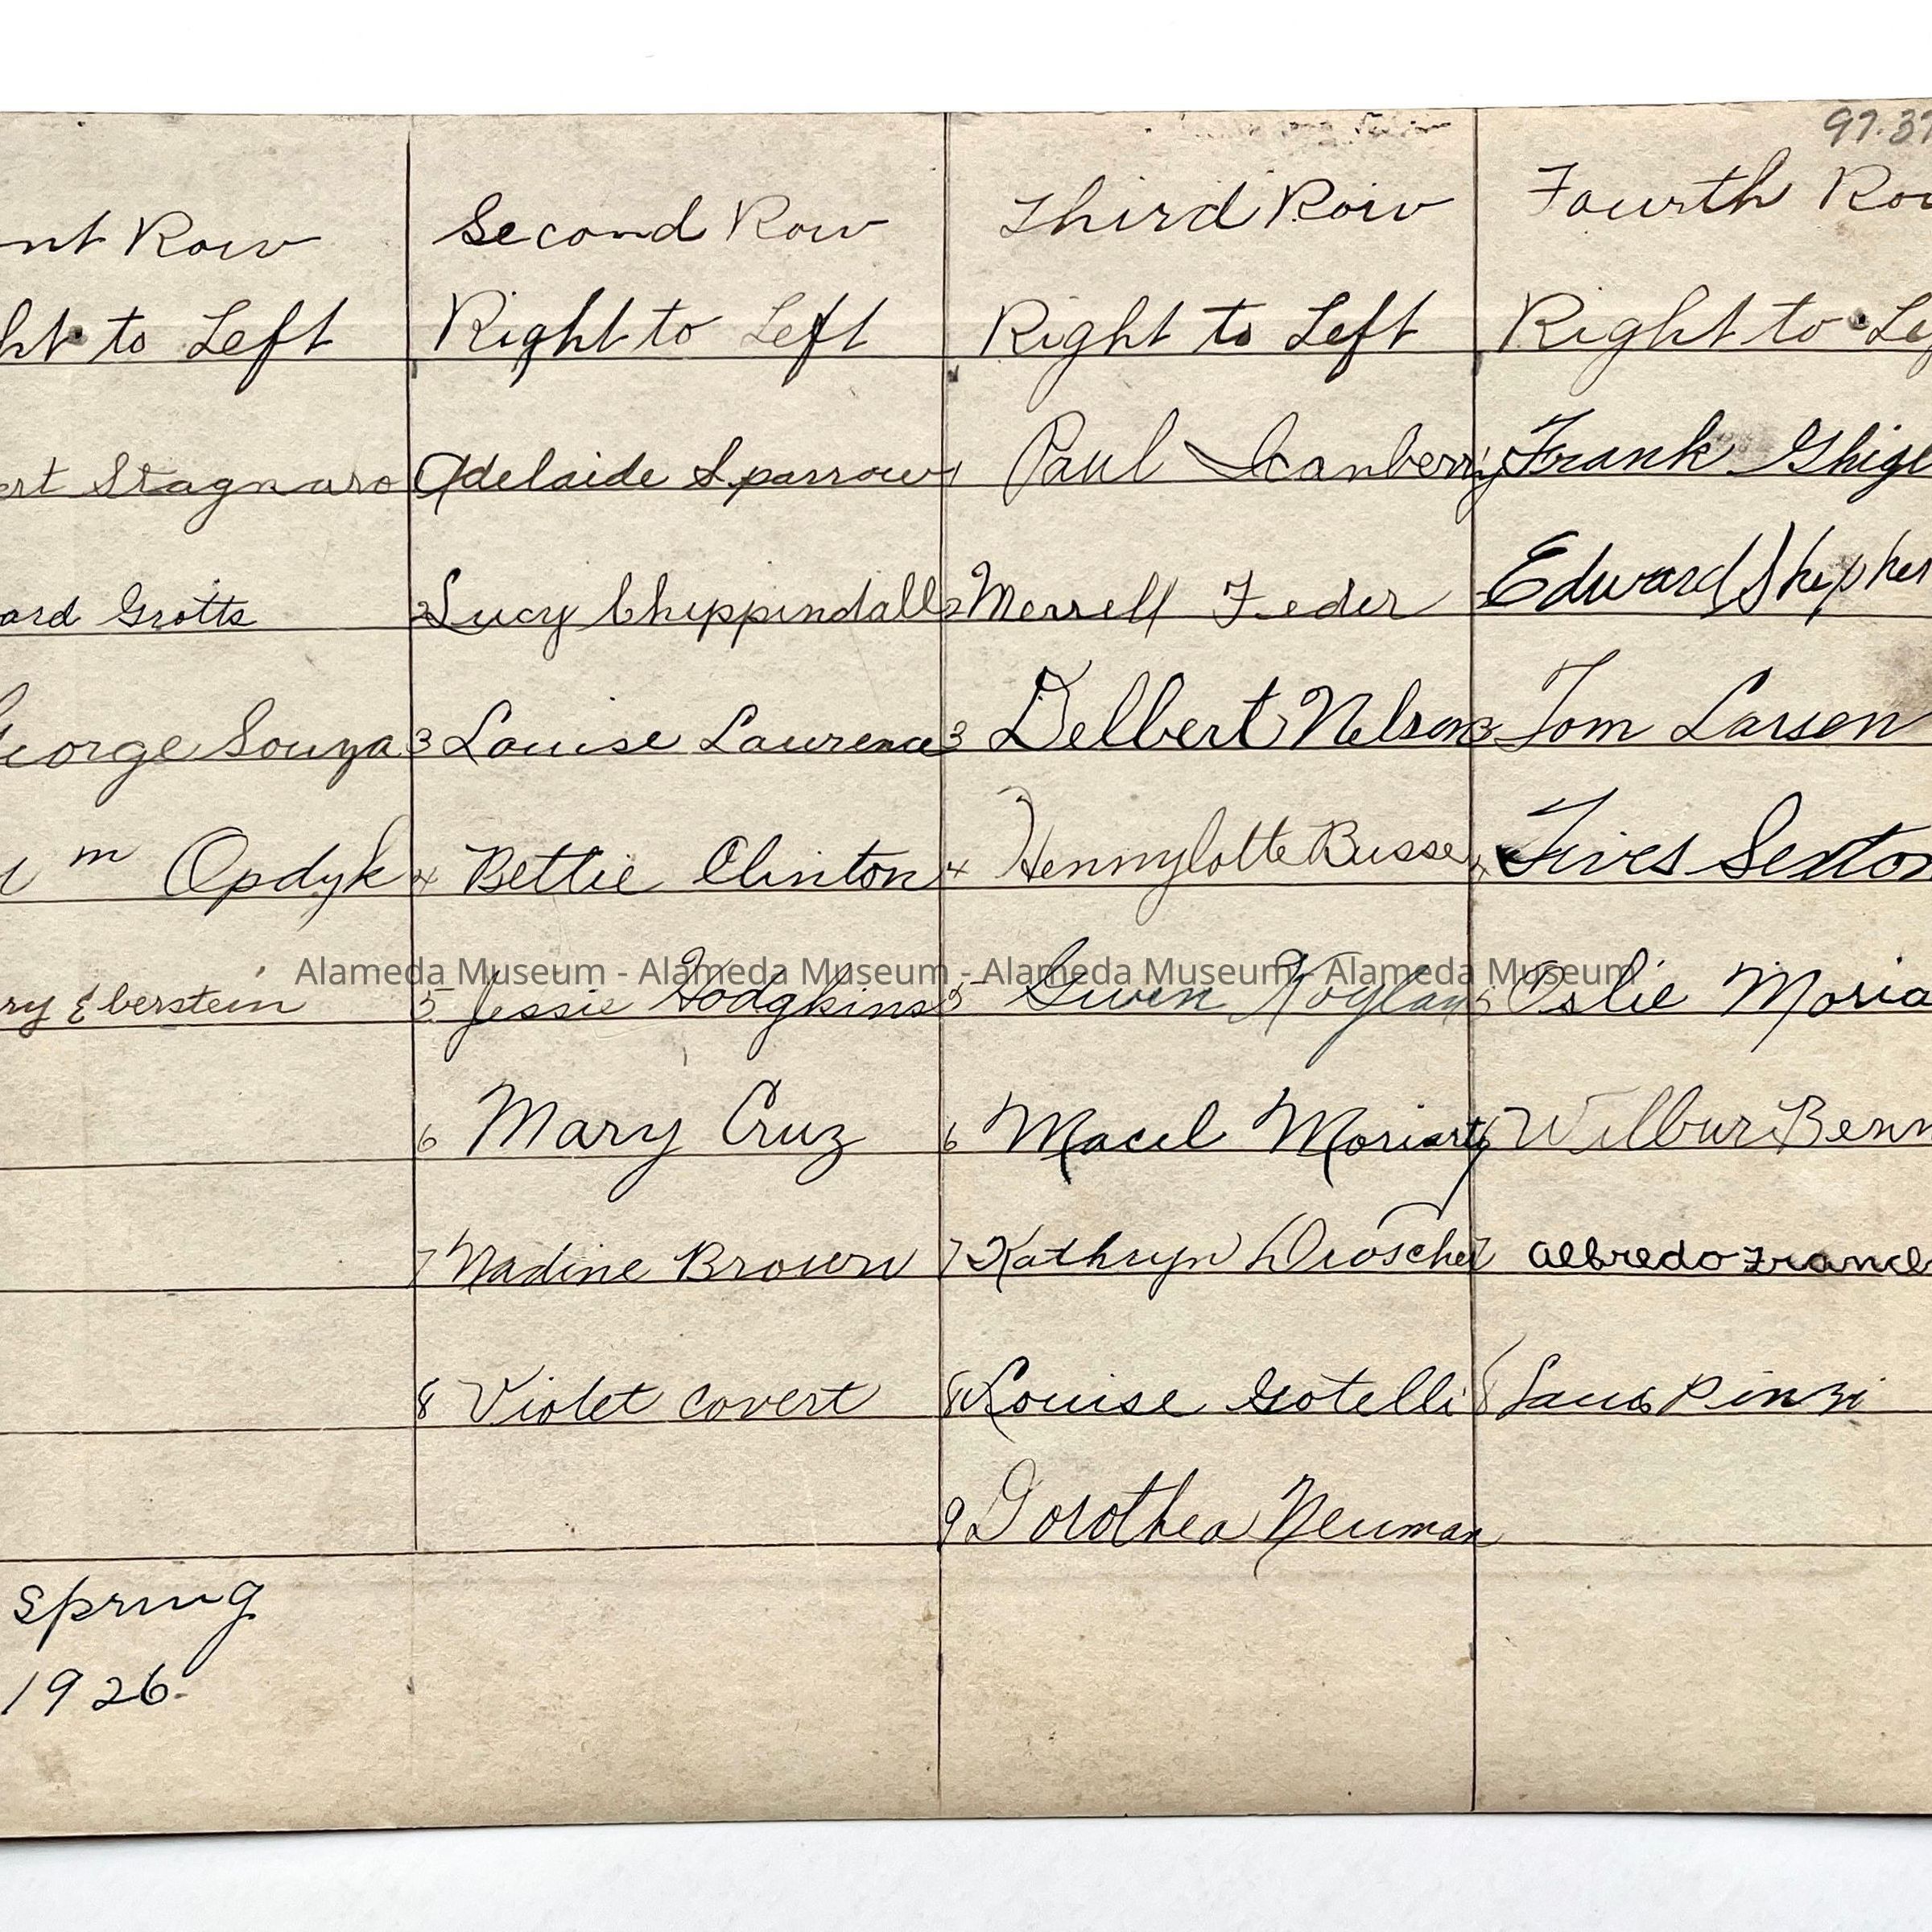 97.37
nt Row
ht to Left
ert Stagnaro
ard Grotts
George Souza
m Opdyk
ry Eberstein
Spring
1926
Second Row
Right to Left
Adelaide Sparrow
2 Lucy Chippindall
3 Louise Laurence
4 Bettie Clinton
5 Jessie Hodgkins
6 Mary Cruz
7 Nadine Brown
8 Violet Covert
Third Row
Right to Left
1 Paul
2 Merrell Feder
3 Delbert Nelson
4 Hennylotte Busse
5 Gwen
6 Macel Moriarty
7 Kathryn Droscher
8 Louise Gotelli
9 Dorothea Neuman
Fourth Row
Right to Lef
Frank Ghigl
Edward Shepher
3 Tom Larsen
4 Sexton
5 Oslie Moria
6 Wilbur Benn
7 Albredo
8 Pinzi
Alameda Museum - Alameda Museum - Alameda Museum - Alameda Museum